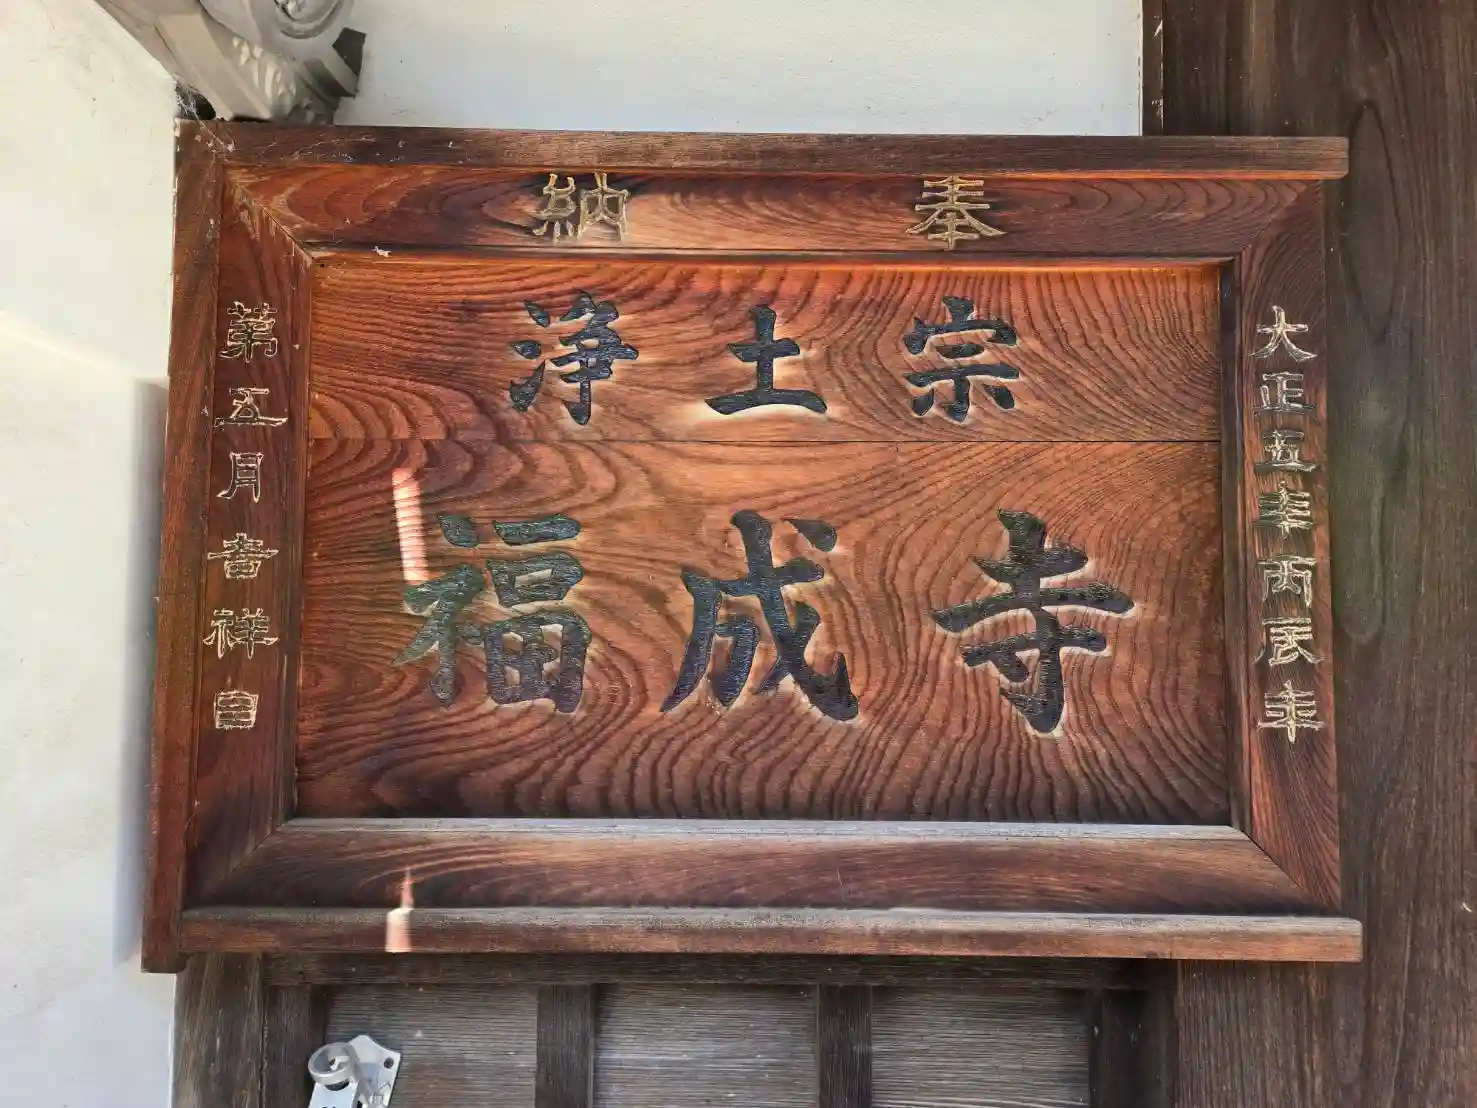 奉納
浄土宗
福成寺
大正五年丙辰年
第五月吉祥日